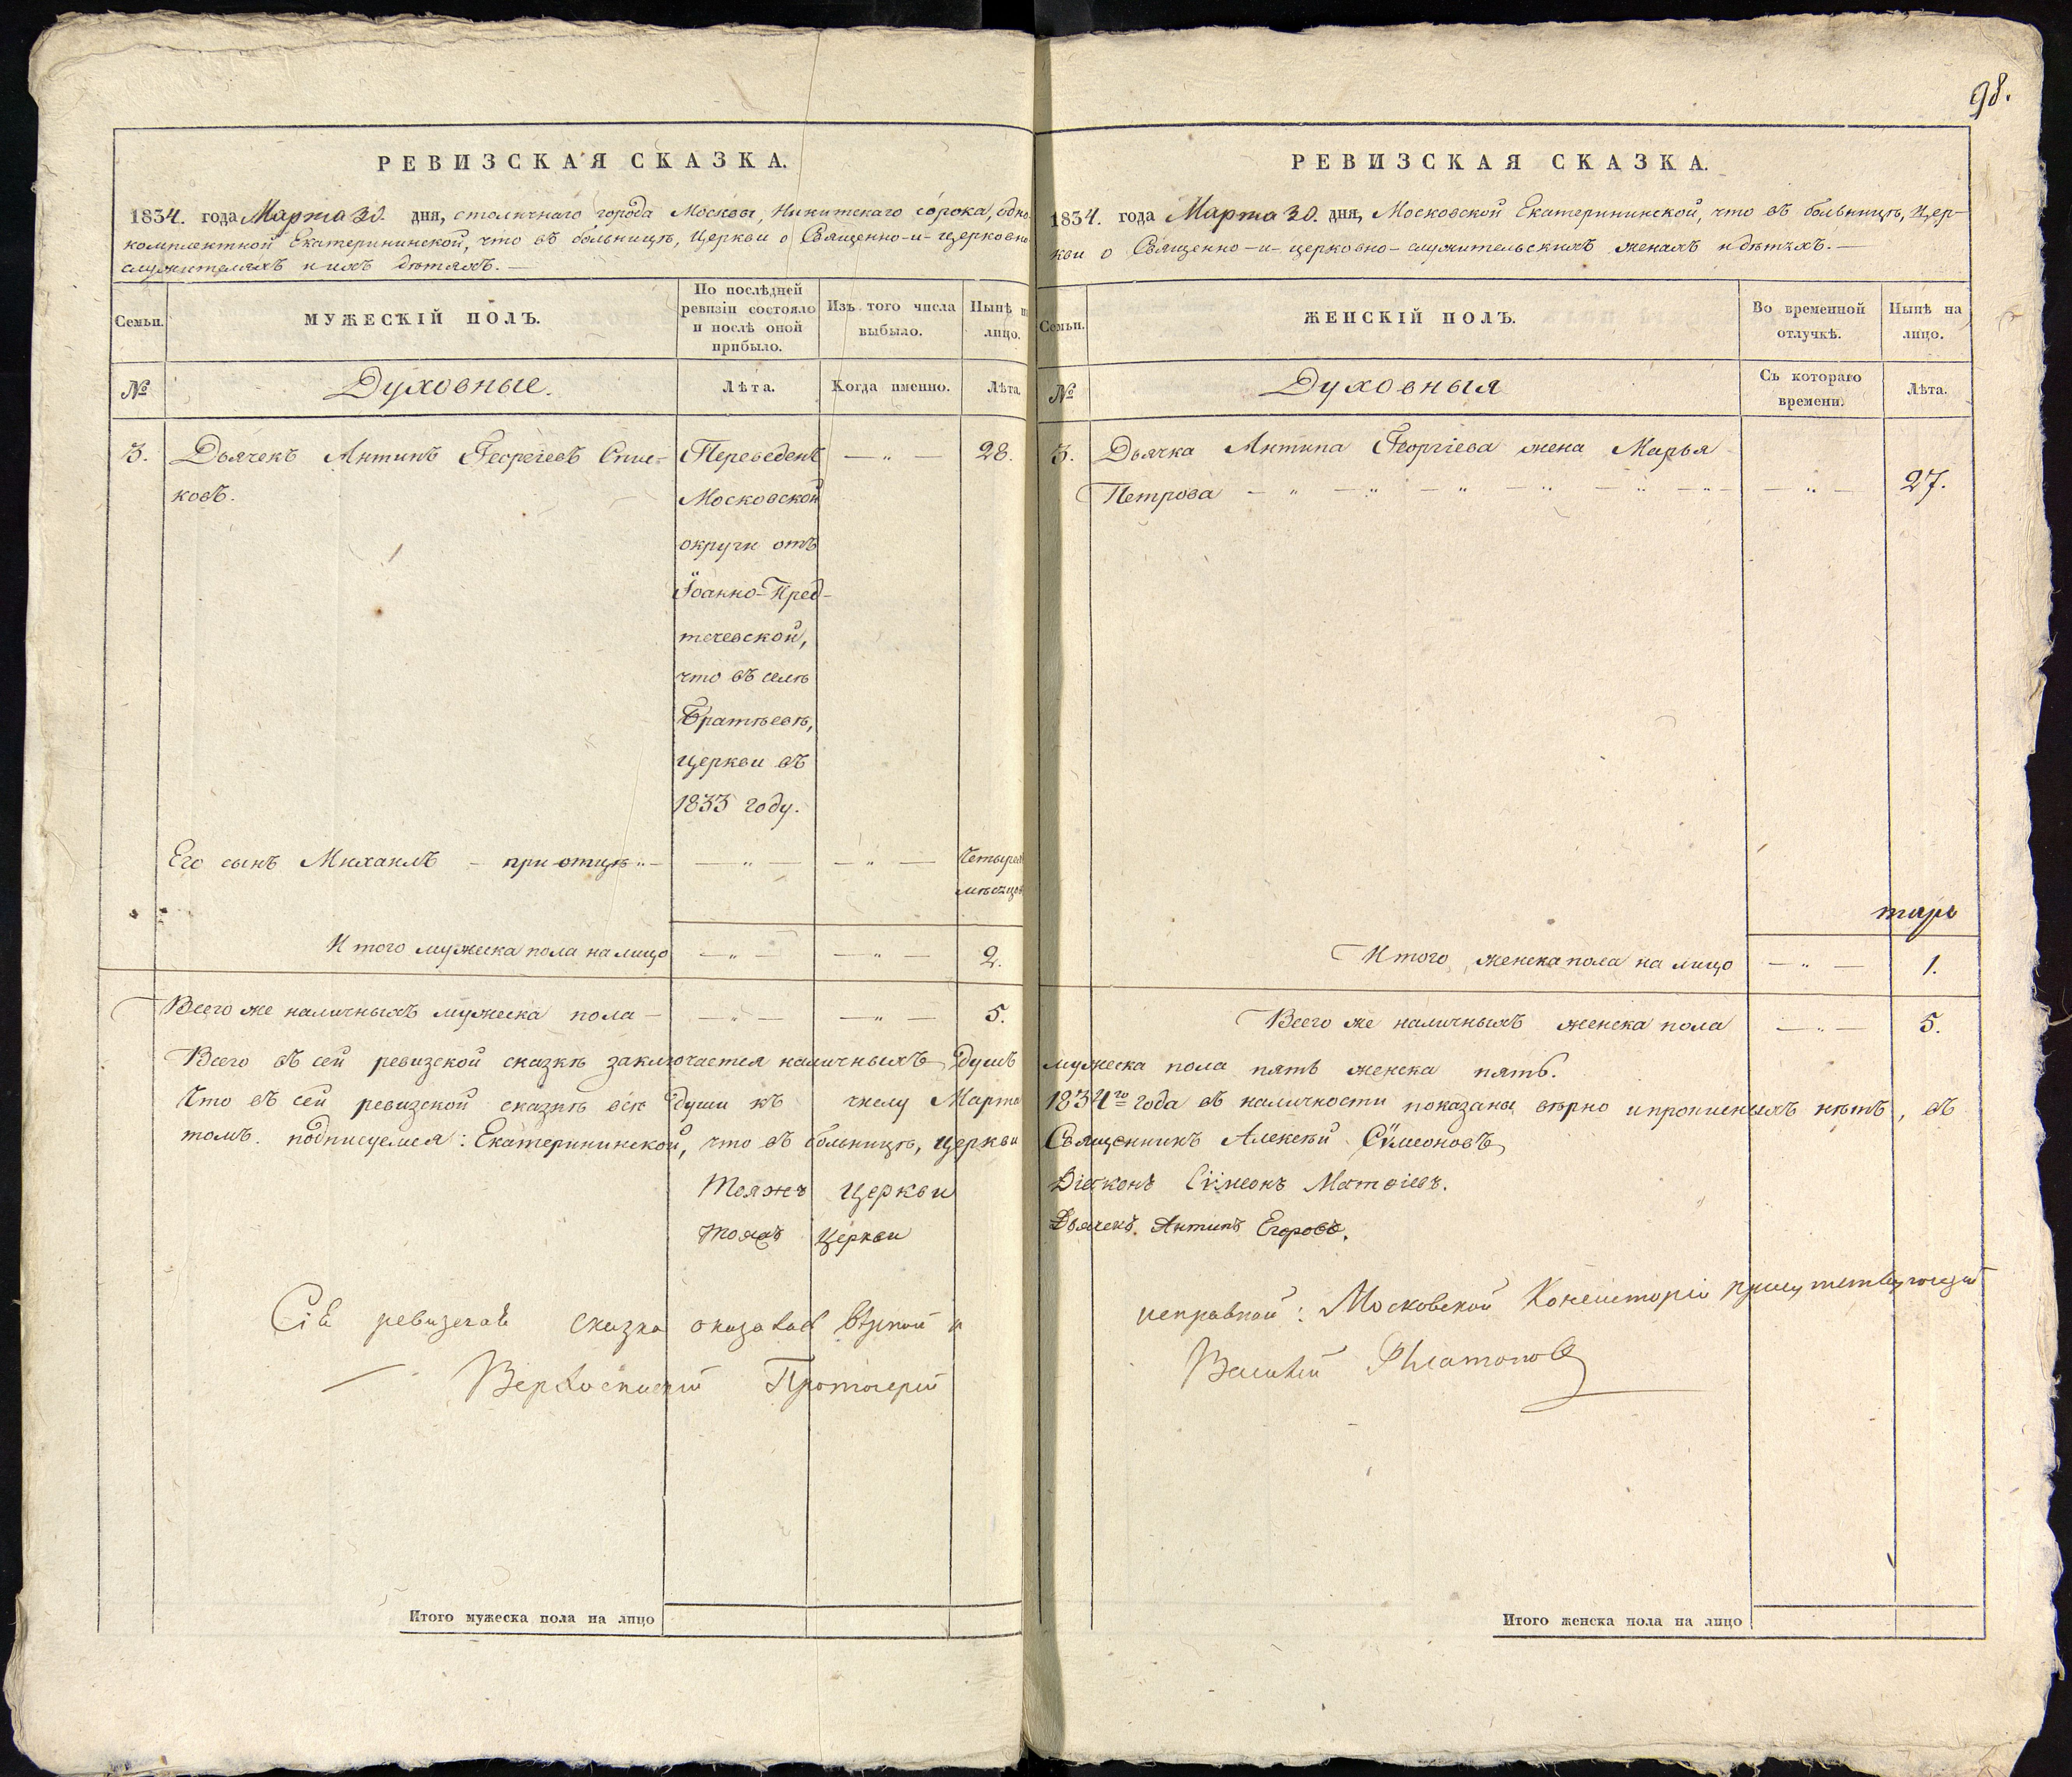 РЕВИЗСКАЯ СКАЗКА.
1834. года Марта 30. дня, столичнаго города Москвы, Никитскаго сорока, одно-
комплектной Екатерининской, что въ больницѣ, Церкви о Священно-и-церковно-
служителяхъ и ихъ дѣтяхъ. —
Семьи.
МУЖЕСКІЙ ПОЛЪ.
По послѣдней
ревизіи состояло
и послѣ оной
прибыло.
Изъ того числа
выбыло.
Нынѣ на
лицо.
№
Духовные.
Лѣта.
Когда именно.
Лѣта.
3.
Дьячекъ Антипъ Георгіевъ
ковъ.
Переведенъ
Московской
округи отъ
Іоанно-Пред-
течевской,
что въ селѣ
Братѣевѣ,
церкви въ
1833 году.
— „ —
28.
Его сынъ Михаилъ — при отцѣ „ —
— „ —
— „ —
Четырехъ
мѣсяцовъ
Итого мужеска пола на лицо
— „ —
— „ —
2.
Всего же наличныхъ мужеска пола —
— „ —
— „ —
5.
Всего въ сей ревизской сказкѣ заключается наличныхъ душъ
Что въ сей ревизской сказкѣ всѣ души къ числу Марта
томъ подписуемся: Екатерининской, что въ больницѣ, церкви
Тояжъ Церкви
Тояжъ Церкви
Сія ревизская сказка оказалась вѣрной и
Верхоспаскій Протоіерей
Итого мужеска пола на лицо
98.
РЕВИЗСКАЯ СКАЗКА.
1834. года Марта 30. дня, Московской Екатерининской, что въ больницѣ, Цер-
кви о Священно-и-церковно-служительскихъ женахъ и дѣтяхъ. —
Семьи.
ЖЕНСКІЙ ПОЛЪ.
Во временной
отлучкѣ.
Нынѣ на
лицо.
№
Духовныя
Съ котораго
времени.
Лѣта.
3.
Дьячка Антипа Георгіева жена Марья
Петрова — „ — „ — „ — „ — „ — „ —
— „ —
27.
Итого женска пола на лицо
— „ —
1.
Всего же наличныхъ женска пола
— „ —
5.
мужеска пола пять женска пять.
1834го года въ наличности показаны вѣрно и прописныхъ нѣтъ, въ
Священникъ Алексѣй Сѵмеоновъ
Діаконъ Сѵмеонъ Матѳіевъ.
Дьячекъ Антипъ Егоровъ.
исправной: Московской Консисторіи присутствующій
Василій Платоновъ
Итого женска пола на лицо